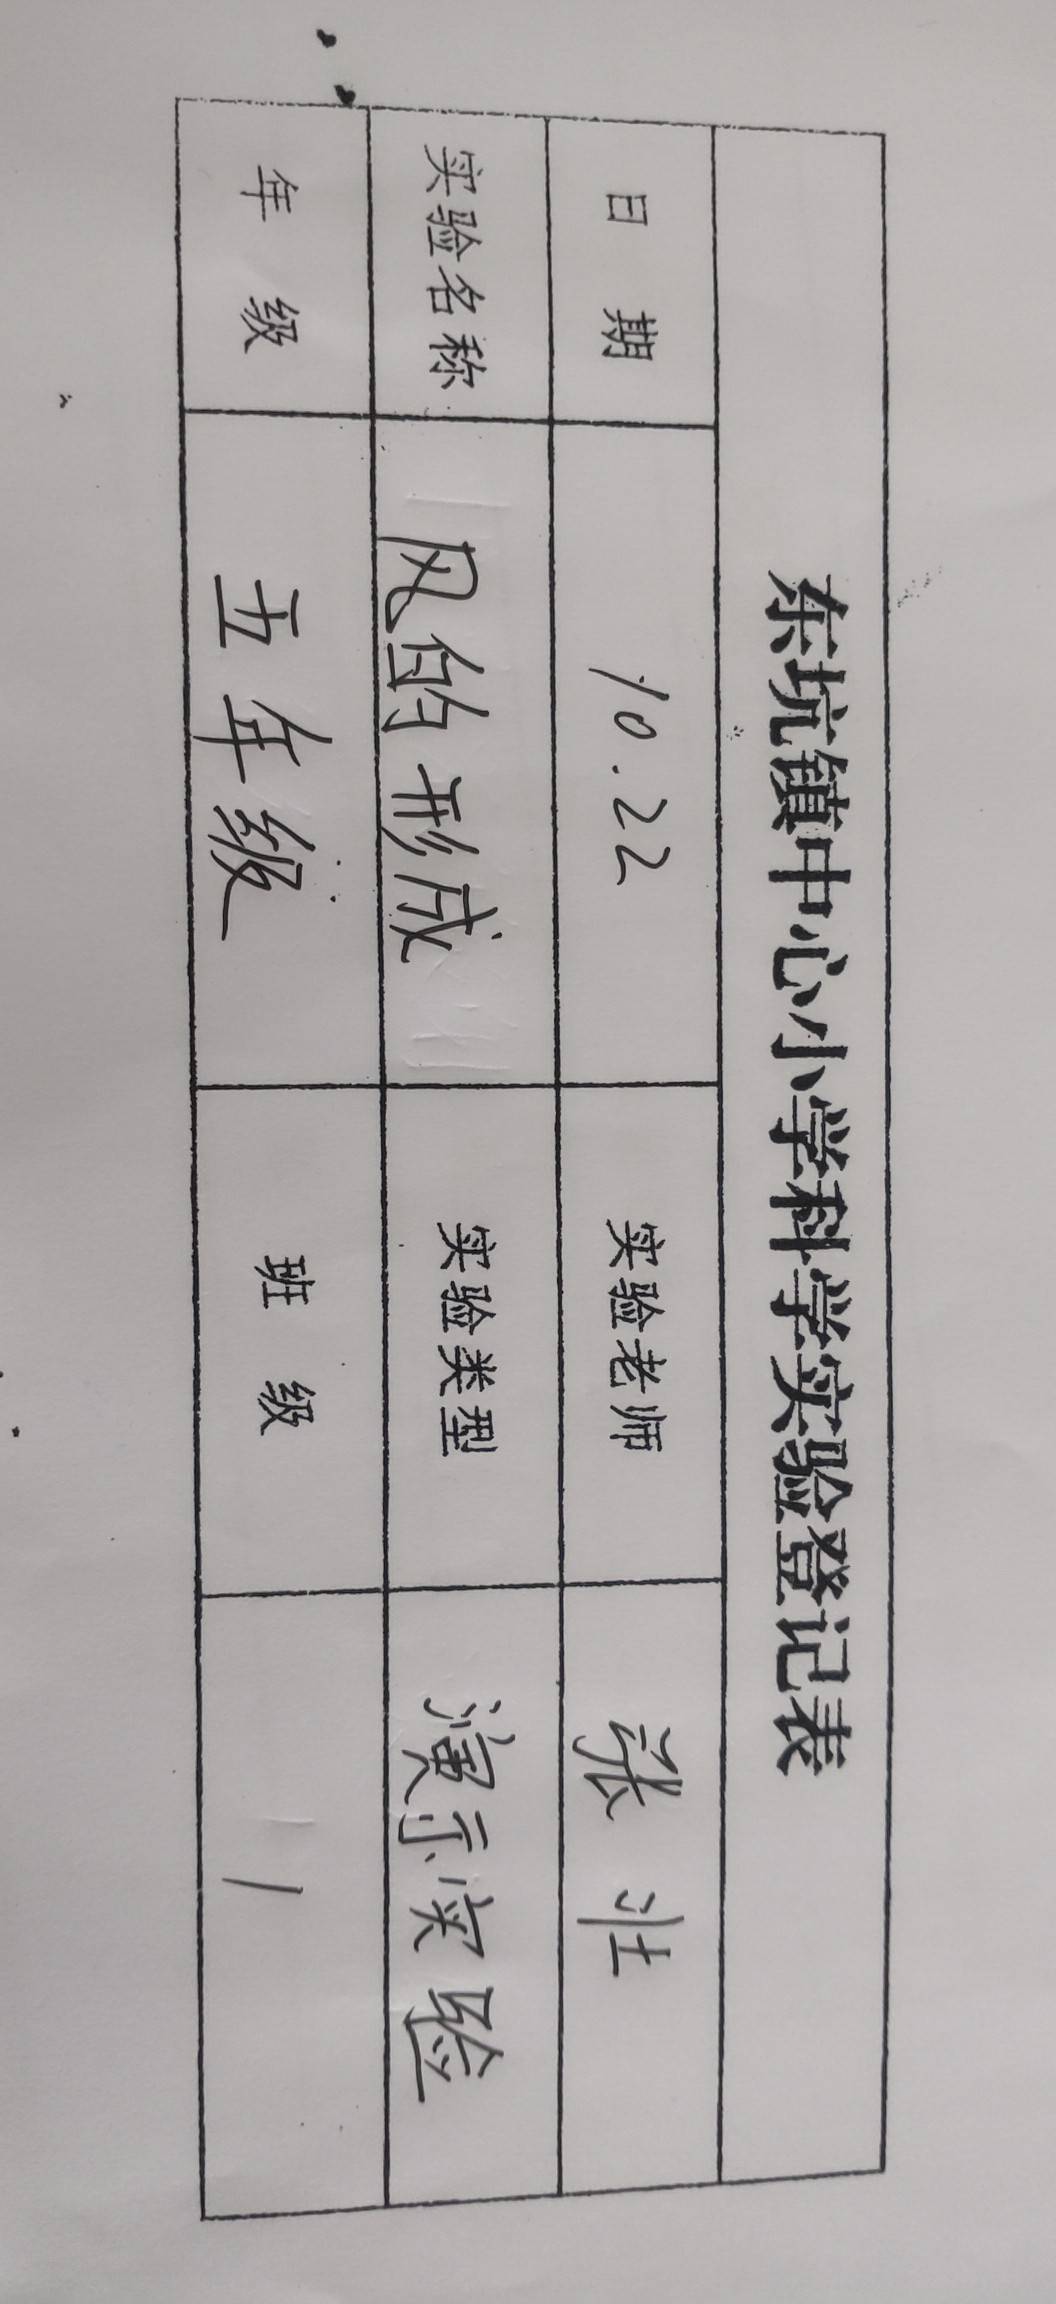 东坑镇中心小学科学实验登记表
日期 10.22 实验老师 张壮
实验名称 风的形成 实验类型 演示实验
年级 五年级 班级 1